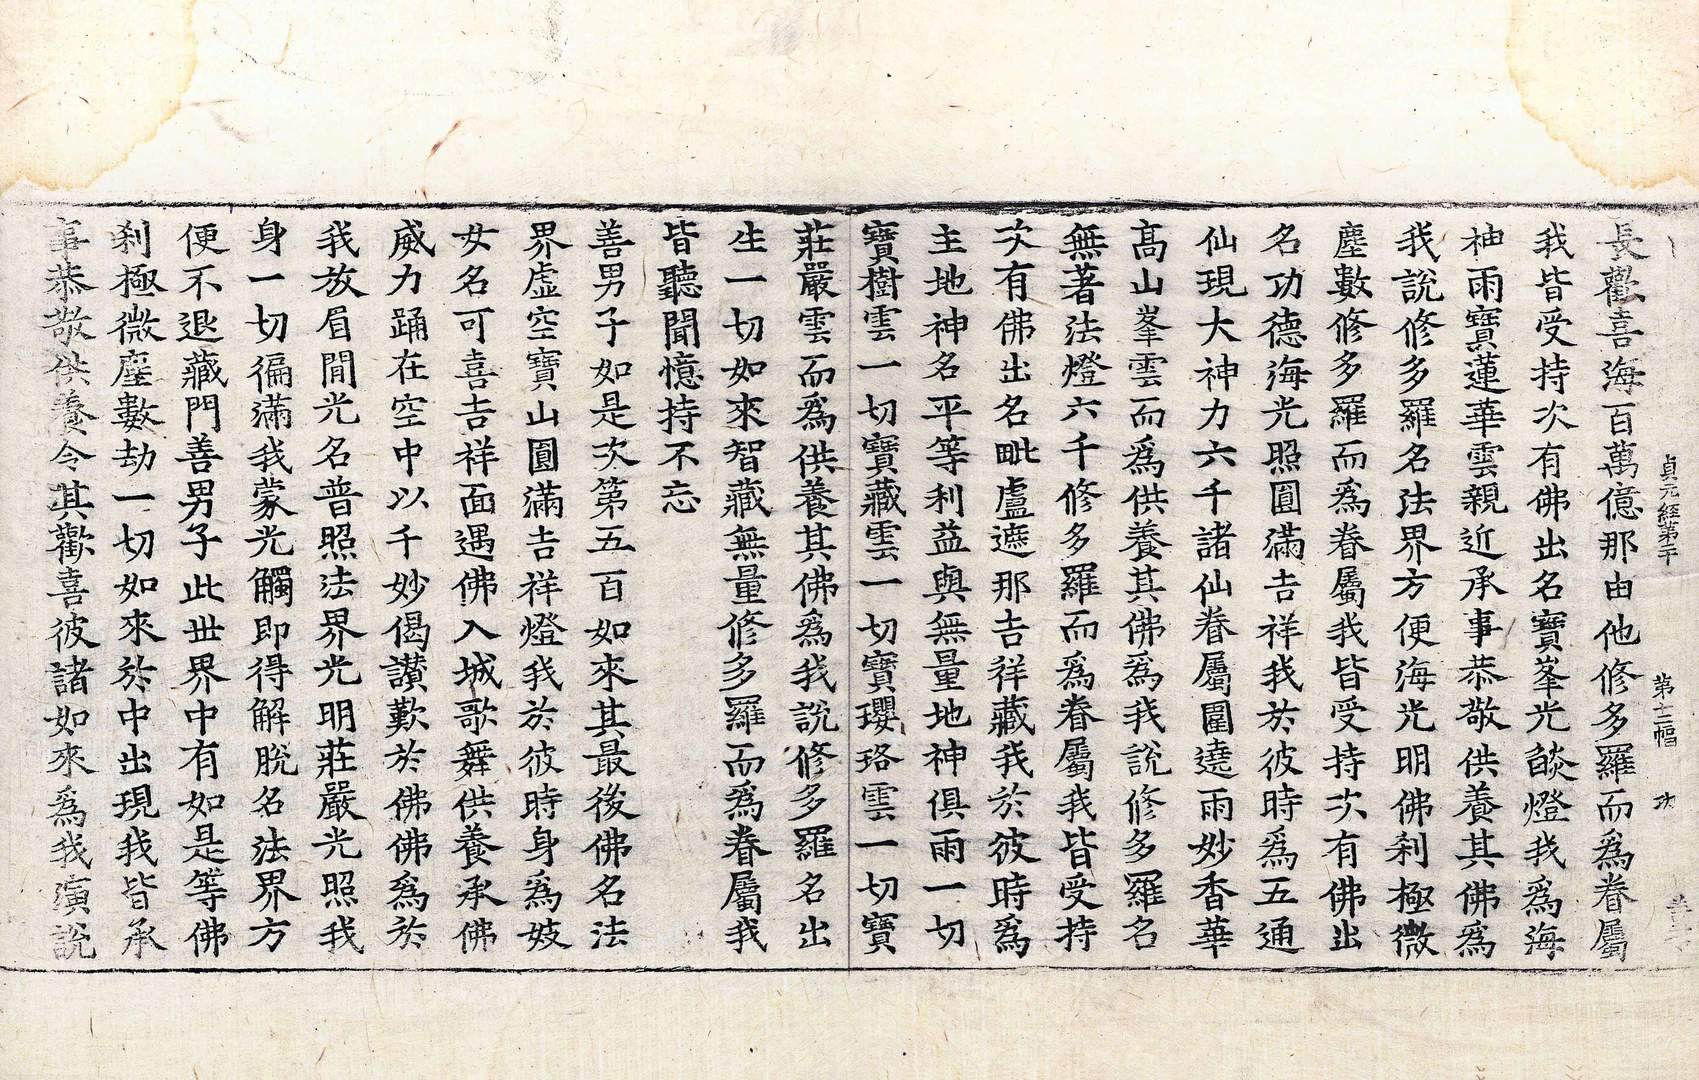 貞元經第二十 第十二幅 功
長歡喜海百萬億那由他修多羅而爲眷屬
我皆受持次有佛出名寶峯光燄燈我爲海
神雨寶蓮華雲親近承事恭敬供養其佛爲
我說修多羅名法界方便海光明佛刹極微
塵數修多羅而爲眷屬我皆受持次有佛出
名功德海光照圓滿吉祥我於彼時爲五通
仙現大神力六千諸仙眷屬圍遶雨妙香華
高山峯雲而爲供養其佛爲我說修多羅名
無著法燈六千修多羅而爲眷屬我皆受持
次有佛出名毗盧遮那吉祥藏我於彼時爲
主地神名平等利益與無量地神俱雨一切
寶樹雲一切寶藏雲一切寶瓔珞雲一切寶
莊嚴雲而爲供養其佛爲我說修多羅名出
生一切如來智藏無量修多羅而爲眷屬我
皆聽聞憶持不忘
善男子如是次第五百如來其最後佛名法
界虛空寶山圓滿吉祥燈我於彼時身爲妓
女名可喜吉祥面遇佛入城歌舞供養承佛
威力踊在空中以千妙偈讃歎於佛佛爲於
我放眉閒光名普照法界光明莊嚴光照我
身一切徧滿我蒙光觸即得解脫名法界方
便不退藏門善男子此世界中有如是等佛
刹極微塵數劫一切如來於中出現我皆承
事恭敬供養令其歡喜彼諸如來爲我演說